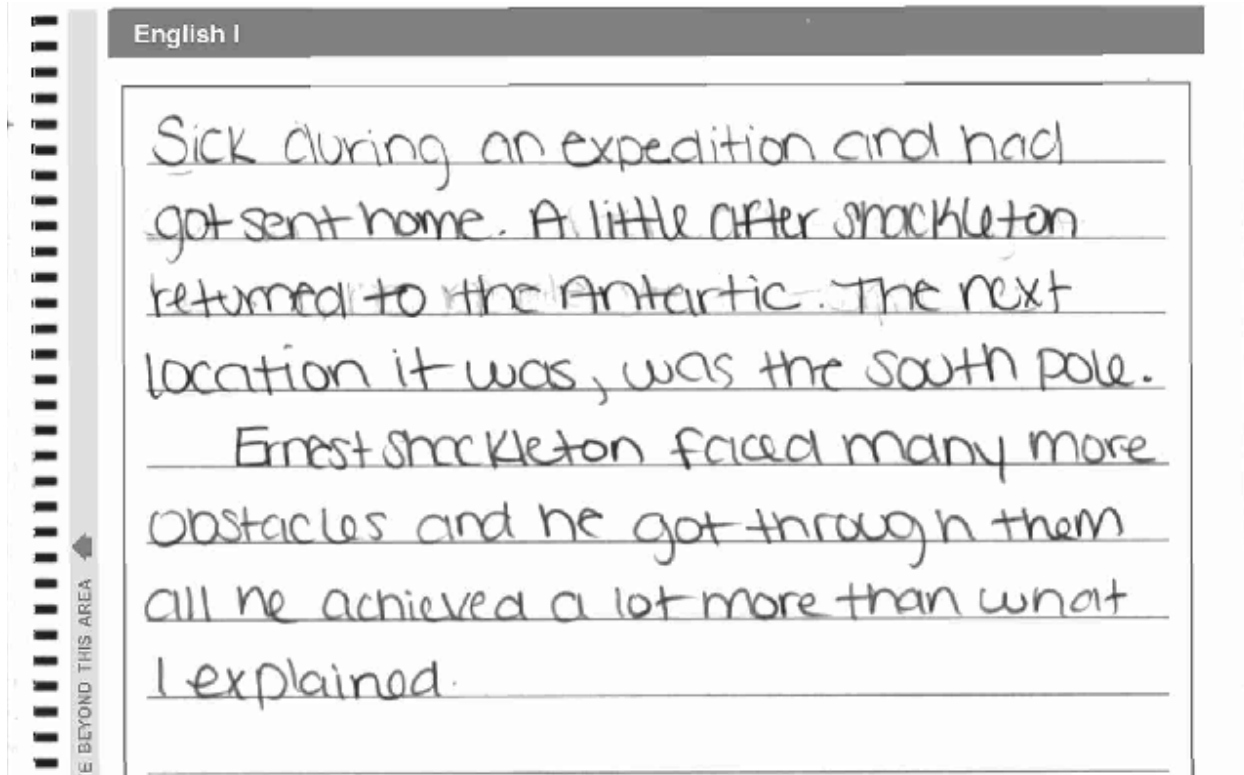 English I
Sick during an expedition and had
got sent home. A little after shackleton
returned to the Antartic. The next
location it was, was the south pole.
Ernest shackleton faced many more
obstacles and he got through them
all he achieved a lot more than what
I explained.
E BEYOND THIS AREA